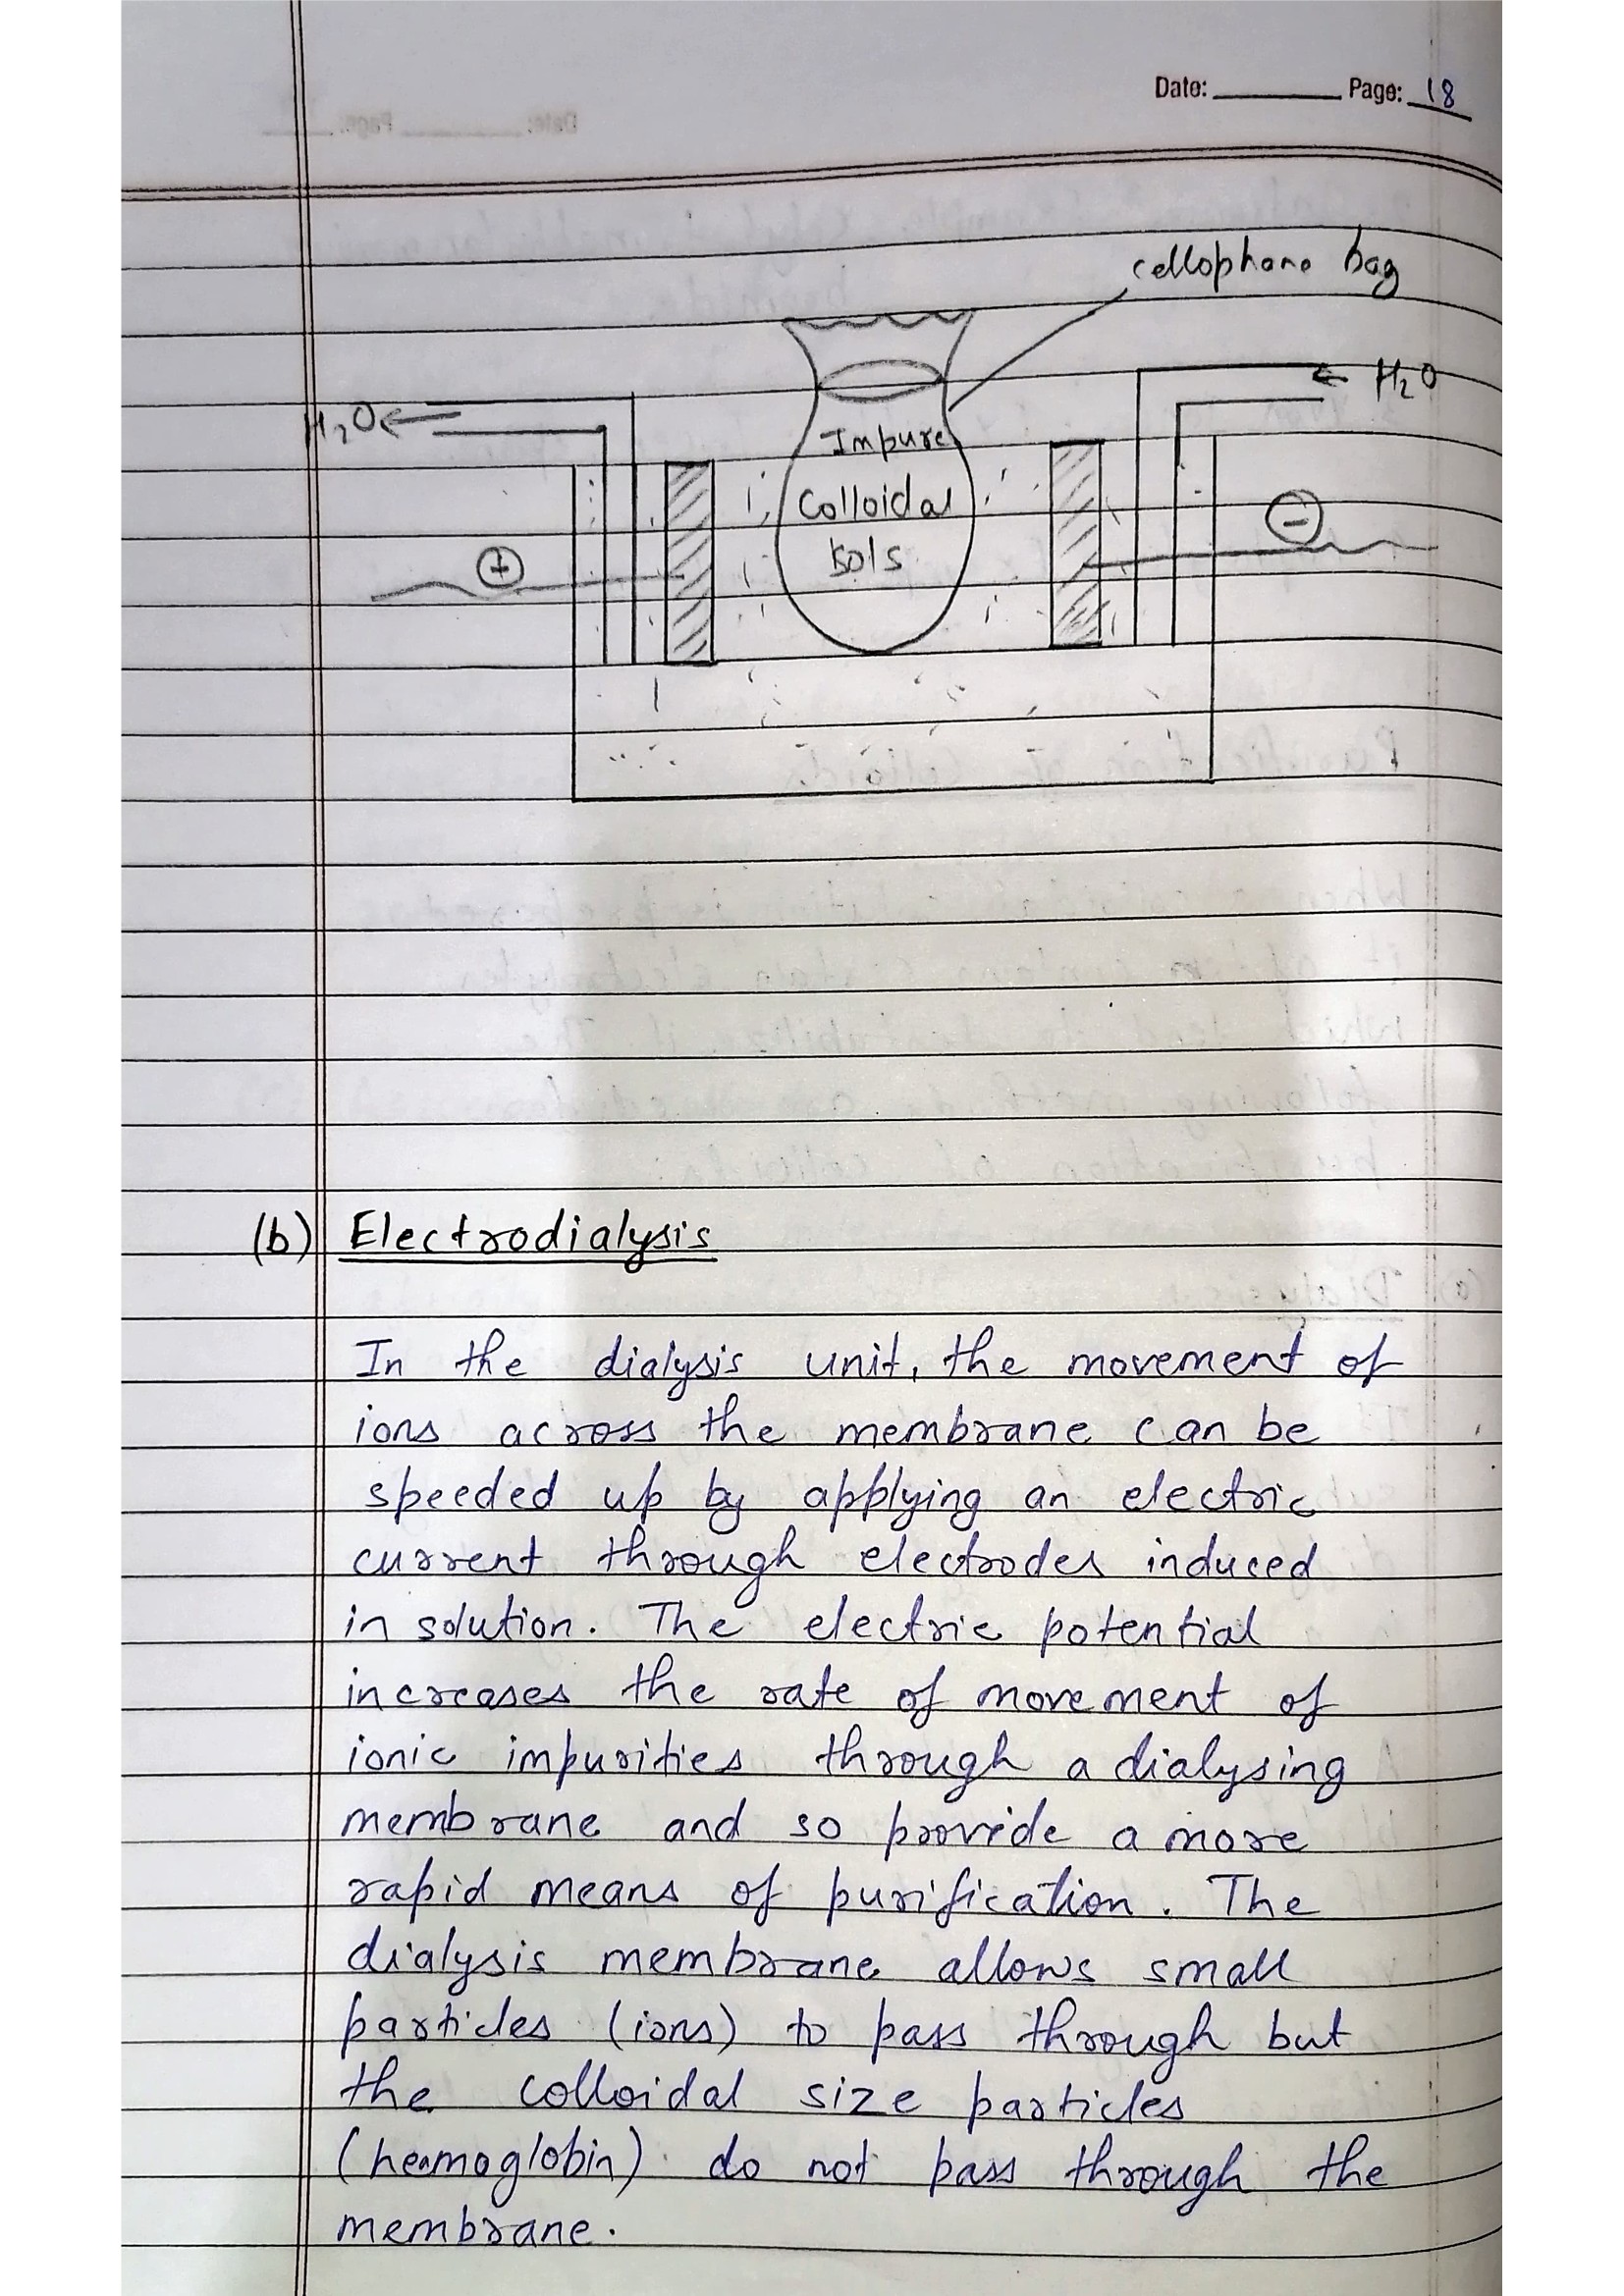 Date: Page: 18
cellophane bag
H₂O
H₂O
Impure
Colloidal
sols
+
-
(b) Electrodialysis
In the dialysis unit, the movement of
ions across the membrane can be
speeded up by applying an electric
current through electrodes induced
in solution. The electric potential
increases the rate of movement of
ionic impurities through a dialysing
membrane and so provide a more
rapid means of purification. The
dialysis membrane allows small
particles (ions) to pass through but
the colloidal size particles
(heamoglobin) do not pass through the
membrane.